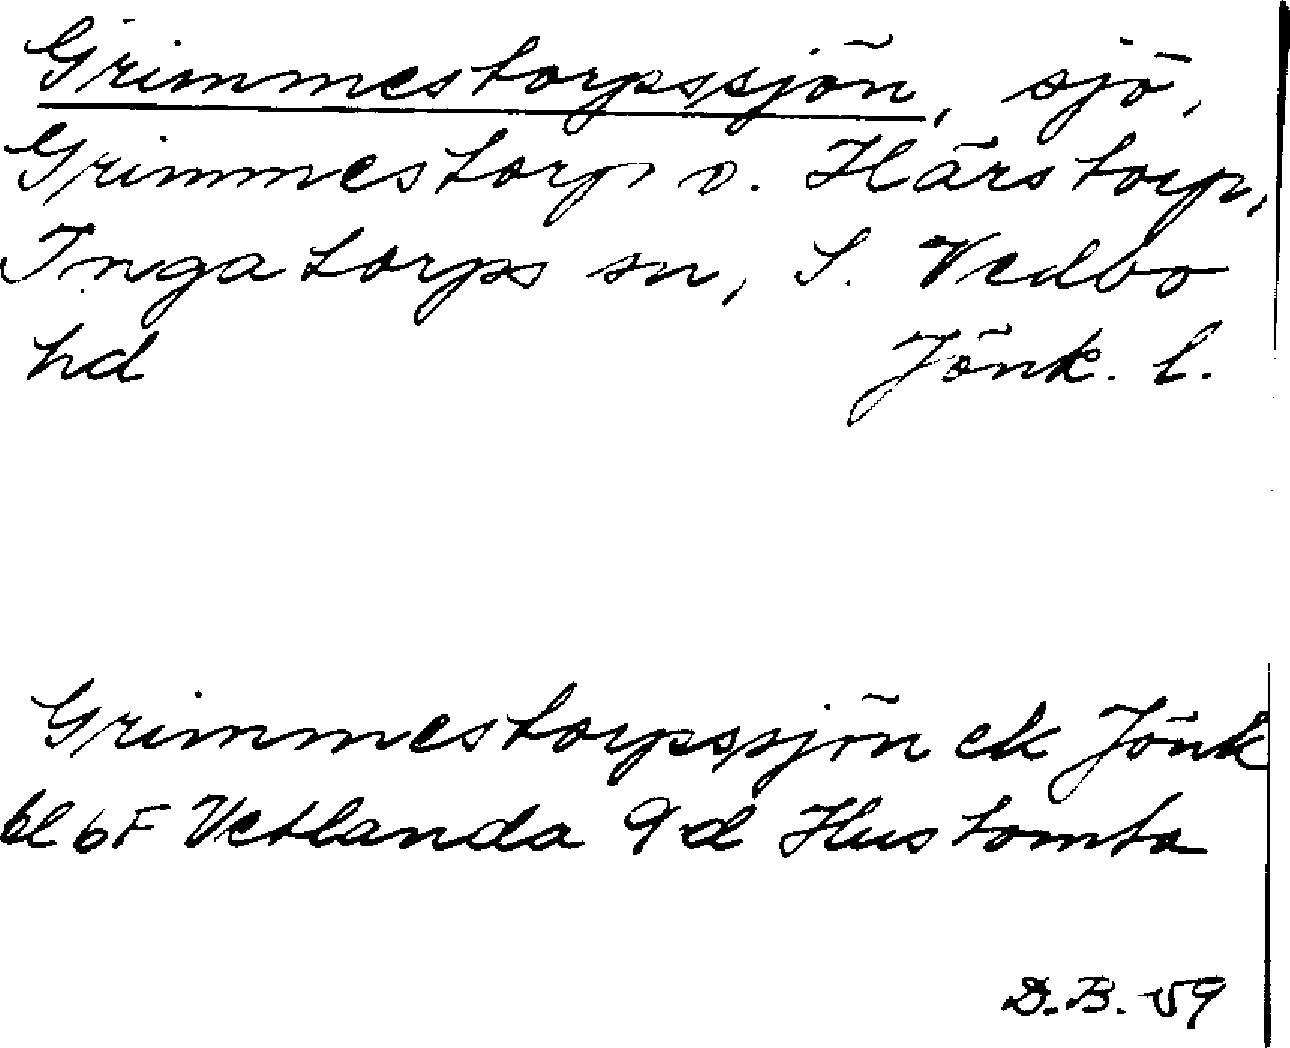 Grimmestorpssjön, sjö,
Grimmestorp o. Härstorp,
Ingatorps sn, S. Vedbo
hd Jönk. l.
Grimmestorpssjön ek Jönk
bl 6F Vetlanda 9d Hustomta
D.B. 59